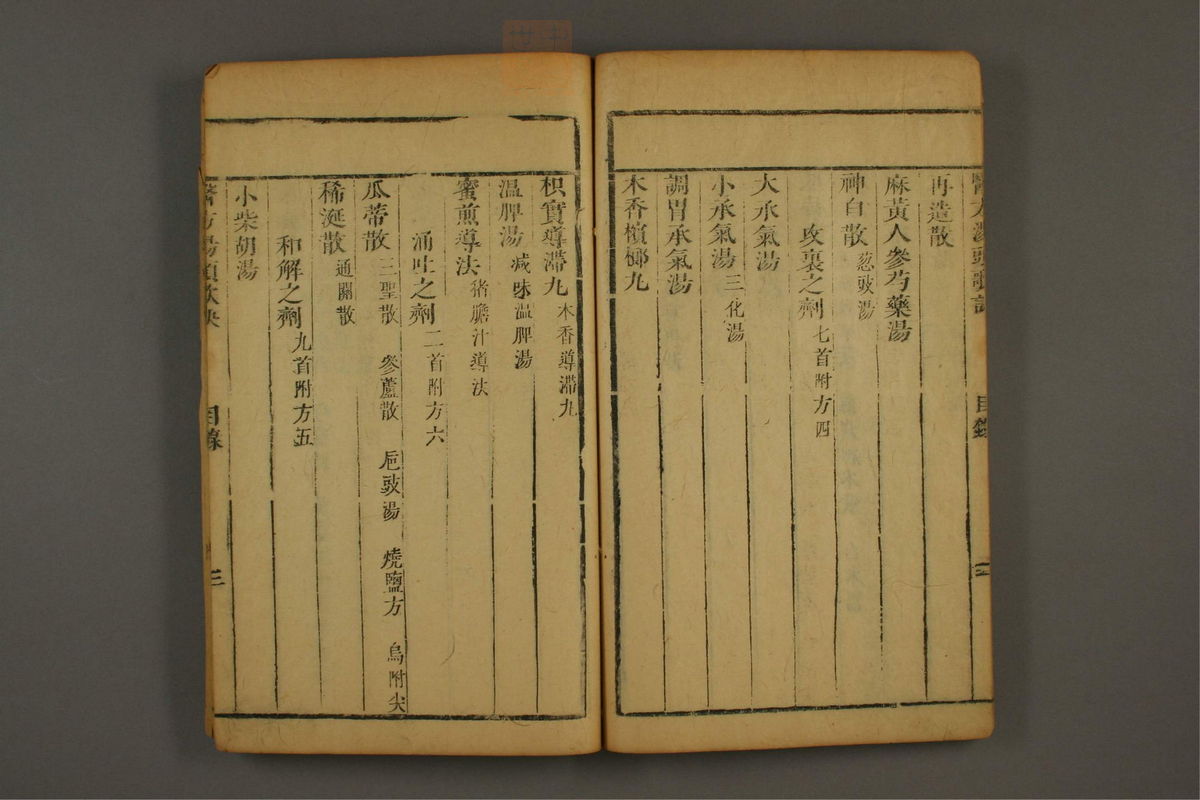 醫方湯頭歌訣 目錄 二
再造散
麻黃人參芍藥湯
神白散 葱豉湯
攻裏之劑 七首附方四
大承氣湯
小承氣湯 三化湯
調胃承氣湯
木香檳榔九
枳實導滯九 木香導滯九
溫脾湯 減味溫脾湯
蜜煎導法 猪膽汁導法
涌吐之劑 二首附方六
瓜蒂散 三聖散 參蘆散 巵豉湯 燒鹽方 烏附尖
稀涎散 通關散
和解之劑 九首附方五
小柴胡湯
醫方湯頭歌訣 目錄 三